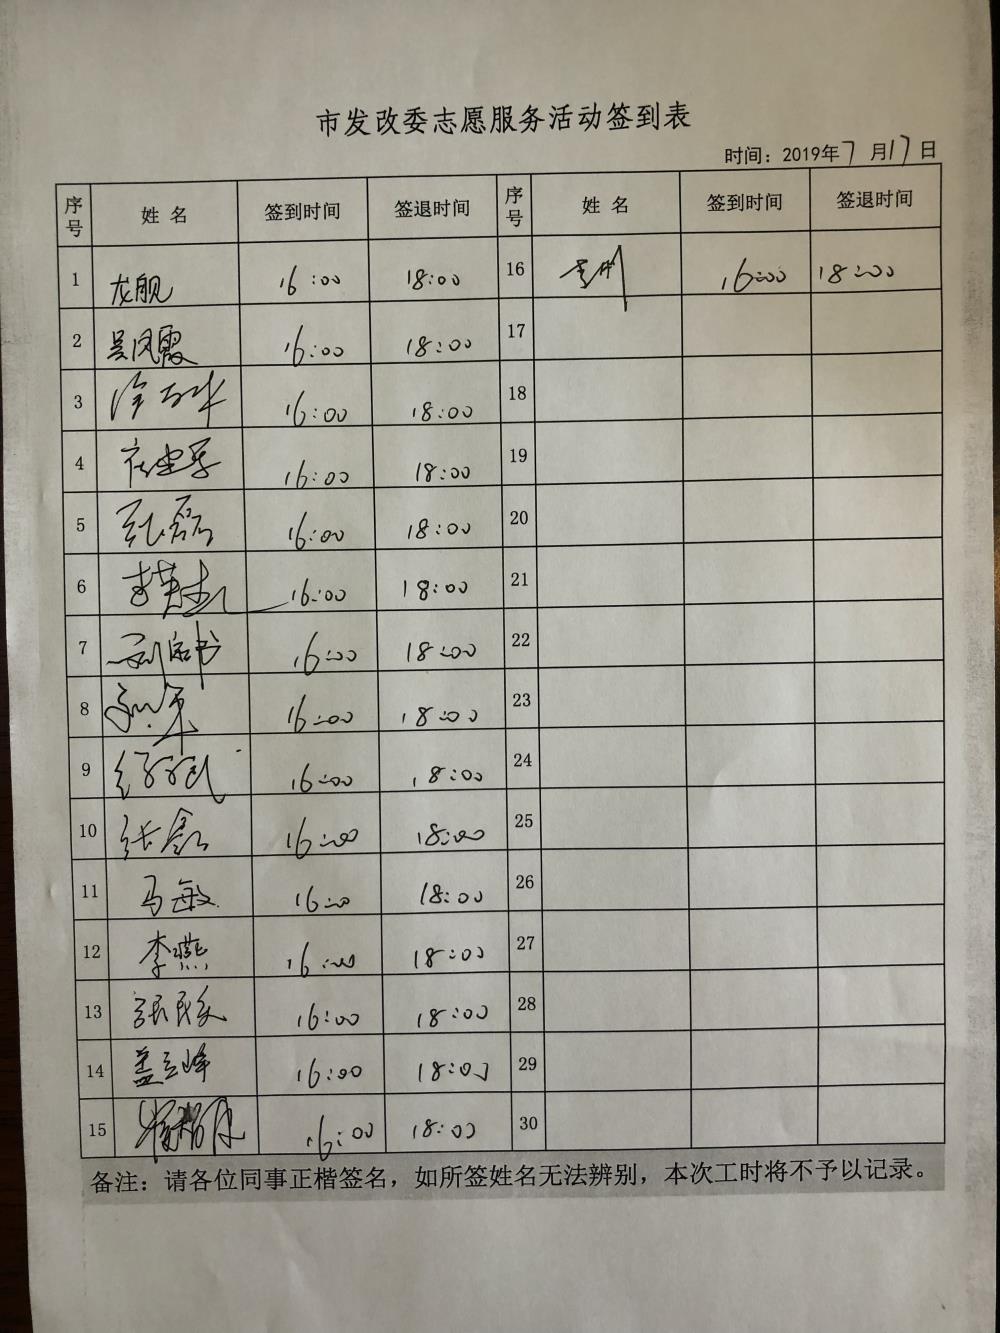 市发改委志愿服务活动签到表
时间：2019年7月17日
序号 姓名 签到时间 签退时间 序号 姓名 签到时间 签退时间
1 龙舰 16:00 18:00 16 16:00 18:00
2 吴凤霞 16:00 18:00 17
3 16:00 18:00 18
4 16:00 18:00 19
5 张磊 16:00 18:00 20
6 李英杰 16:00 18:00 21
7 16:00 18:00 22
8 16:00 18:00 23
9 16:00 18:00 24
10 张鑫 16:00 18:00 25
11 马敏 16:00 18:00 26
12 李燕 16:00 18:00 27
13 16:00 18:00 28
14 盖立峰 16:00 18:00 29
15 16:00 18:00 30
备注：请各位同事正楷签名，如所签姓名无法辨别，本次工时将不予以记录。